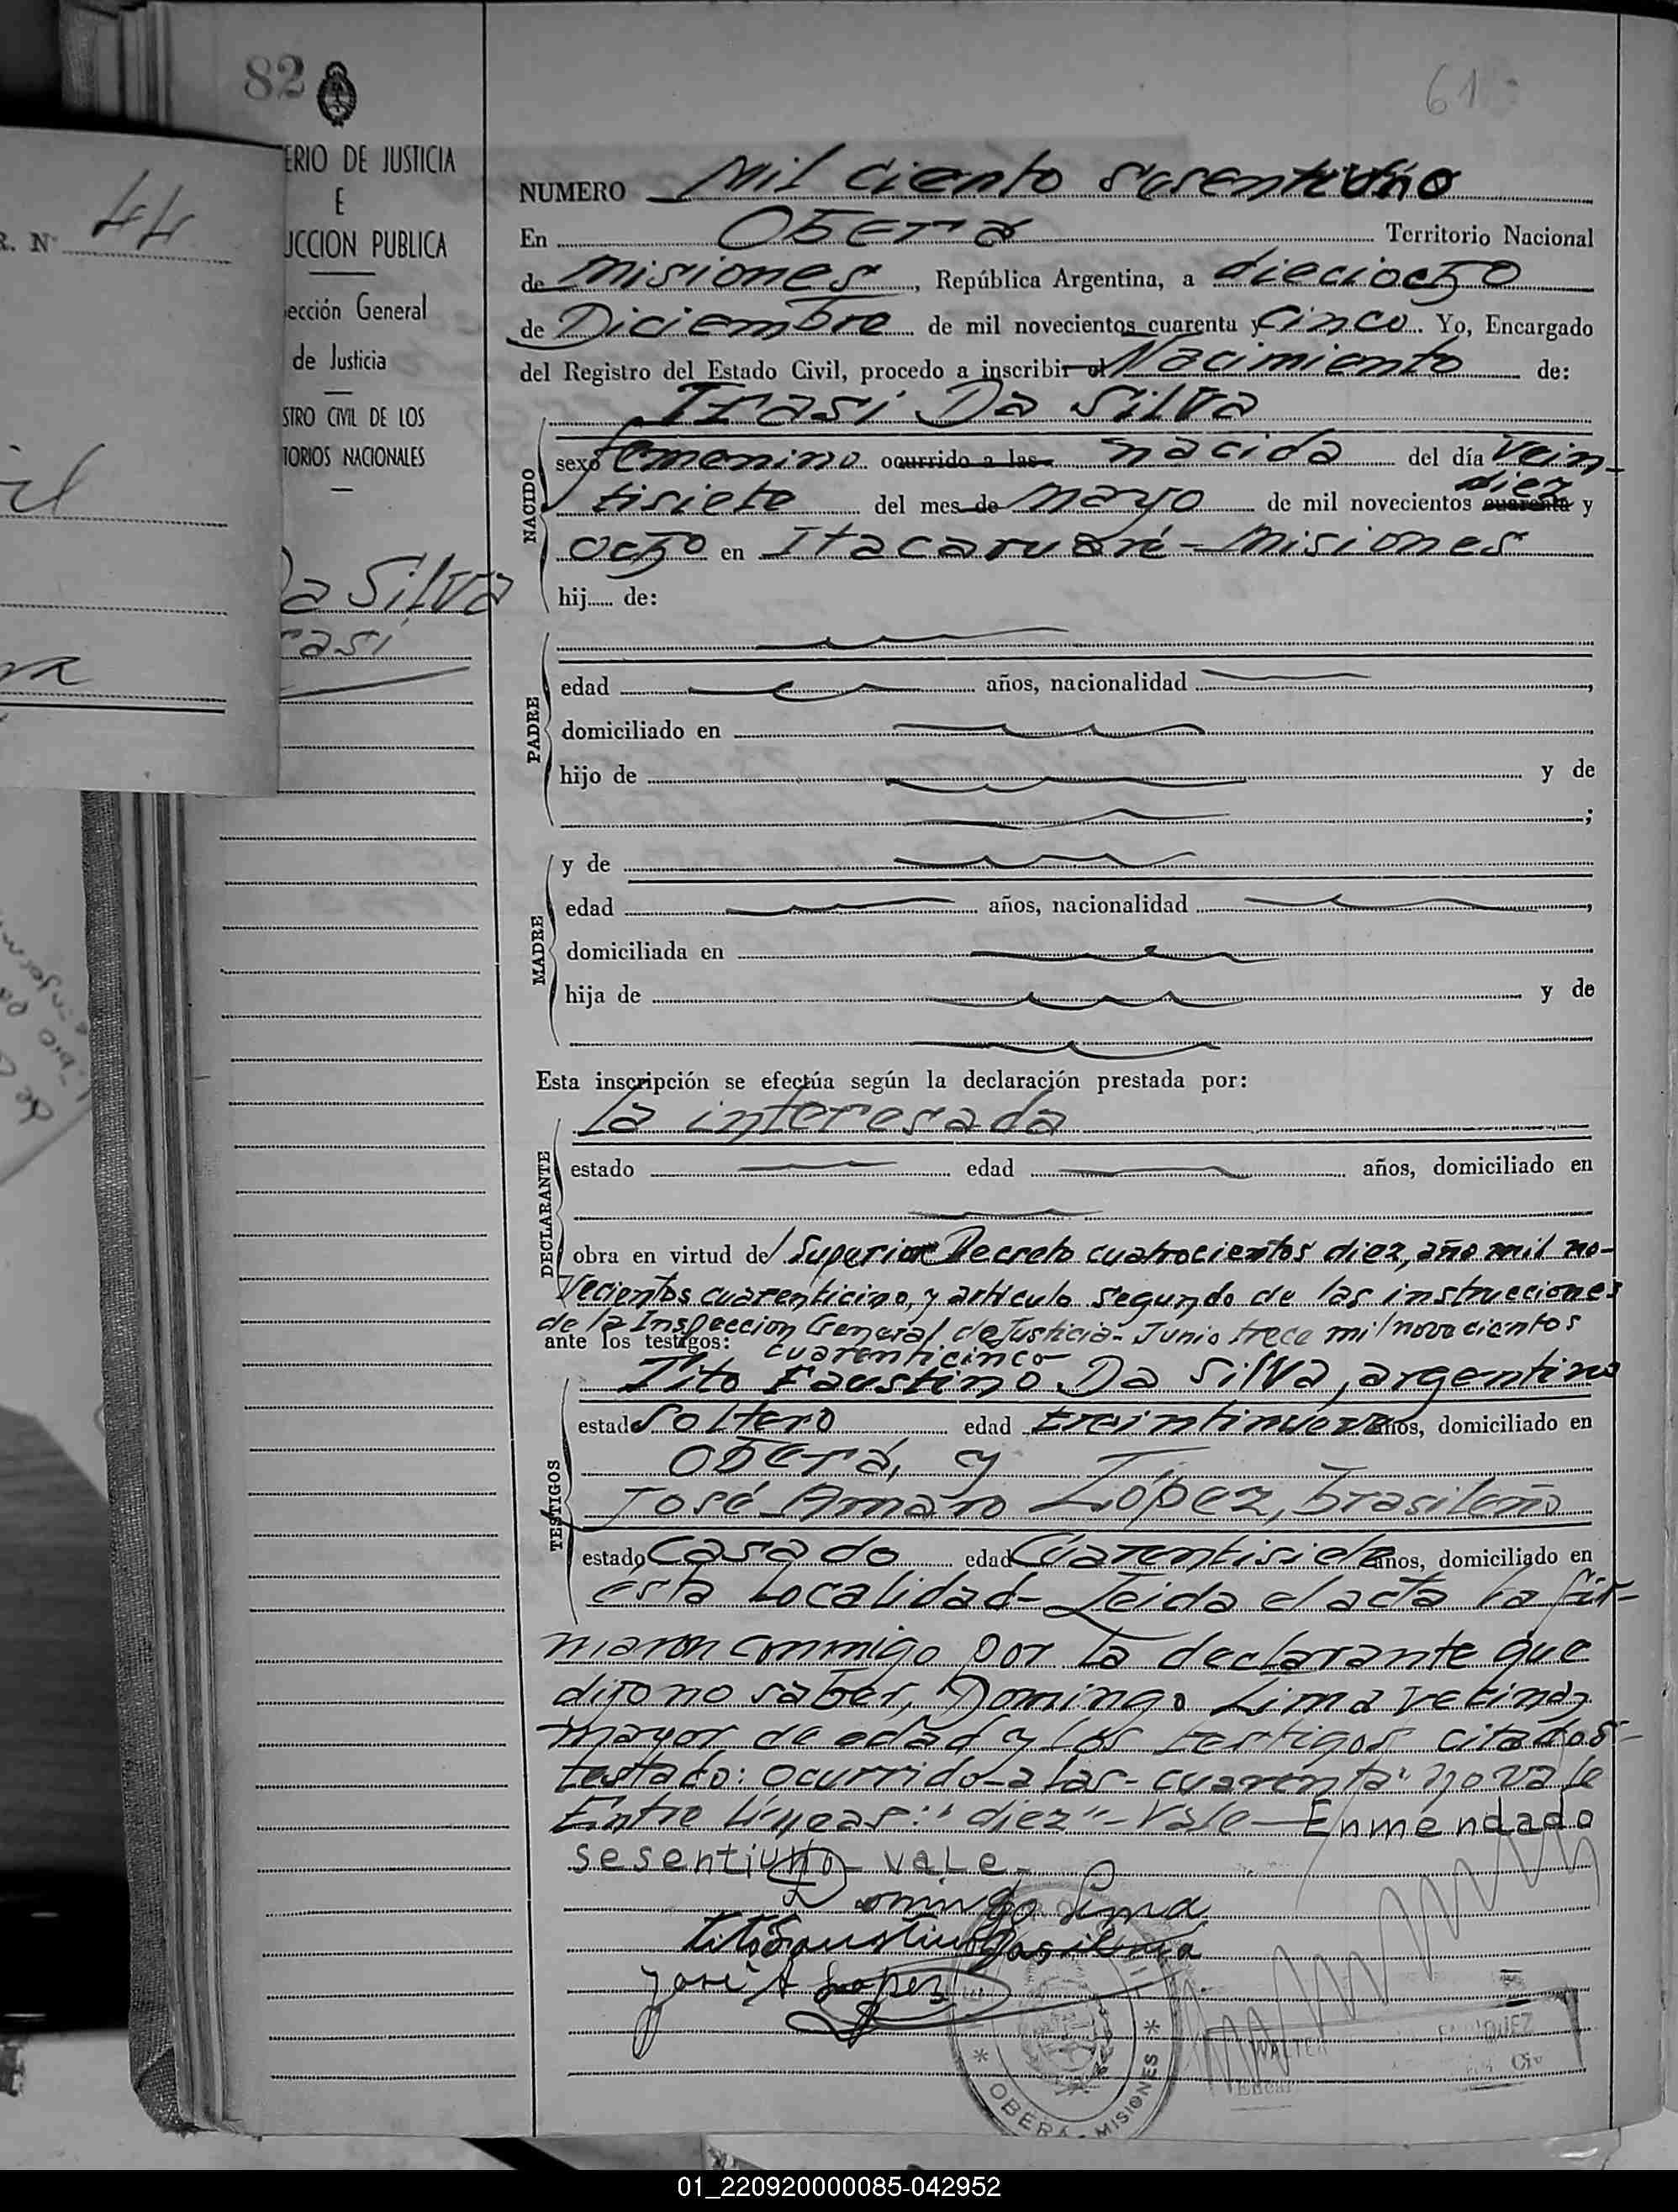 82
61
ERIO DE JUSTICIA
E
UCCION PUBLICA
ección General
de Justicia
STRO CIVIL DE LOS
TORIOS NACIONALES
Da Silva
rasi
R. Nº 44
NUMERO Mil ciento sesentiuno
En Oberá Territorio Nacional
de Misiones, República Argentina, a dieciocho
de Diciembre de mil novecientos cuarenta y cinco. Yo, Encargado
del Registro del Estado Civil, procedo a inscribir el Nacimiento de:
Irasi Da Silva
NACIDO
sexo femenino ocurrido a las nacida del día Vein-
diez
tisiete del mes de mayo de mil novecientos cuarenta y
ocho en Itacaruaré - Misiones
hij...... de:
PADRE
edad años, nacionalidad ,
domiciliado en
hijo de y de
;
MADRE
y de
edad años, nacionalidad ,
domiciliada en
hija de y de
Esta inscripción se efectúa según la declaración prestada por:
La interesada
DECLARANTE
estado edad años, domiciliado en
obra en virtud del Superior Decreto cuatrocientos diez, año mil no-
vecientos cuarenticino, y artículo segundo de las instrucciones
de la Inspeccion General de Justicia - Junio trece mil novecientos
ante los testigos: cuarenticinco
Tito Faustino Da Silva, argentino
TESTIGOS
estado Soltero edad treintinueve años, domiciliado en
Oberá, y
José Amaro López, brasileño
estado Casado edad Cuarentisiete años, domiciliado en
esta Localidad - Leida el acta la fir-
maron conmigo por la declarante que
dijo no saber, Domingo Lima vecino,
mayor de edad y los testigos citados -
testado: ocurrido - a las - cuarenta: no vale
Entre líneas: "diez" - Vale - Enmendado
sesentiuno - vale -
Domingo Lima
Tito Faustino Dasilva
José A Lopez
WALTER
OBERÁ - MISIONES
01_220920000085-042952